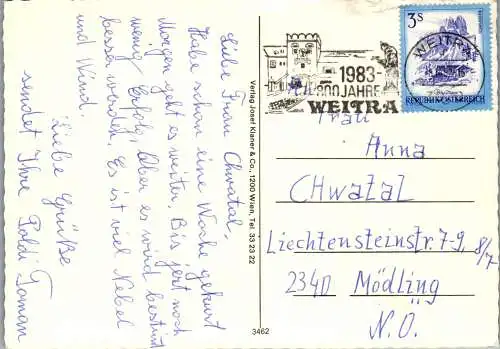 Liebe Frau Chwatal,
Habe schon eine Woche gekurt
Morgen geht es weiter, Bis jetzt noch
wenig Erfolg, Aber es wird bestimmt
besser werden. Es ist viel Nebel
und Wind.
Liebe Grüße
sendet Ihre Poldi Toman
Verlag Josef Klaner & Co., 1200 Wien, Tel. 33 23 22
3462
1983-
800 JAHRE
WEITRA
3 S
WEITRA
REPUBLIK ÖSTERREICH
Frau
Anna
CHWATAL
Liechtensteinstr. 7-9, 8/7
2340 Mödling
N.Ö.